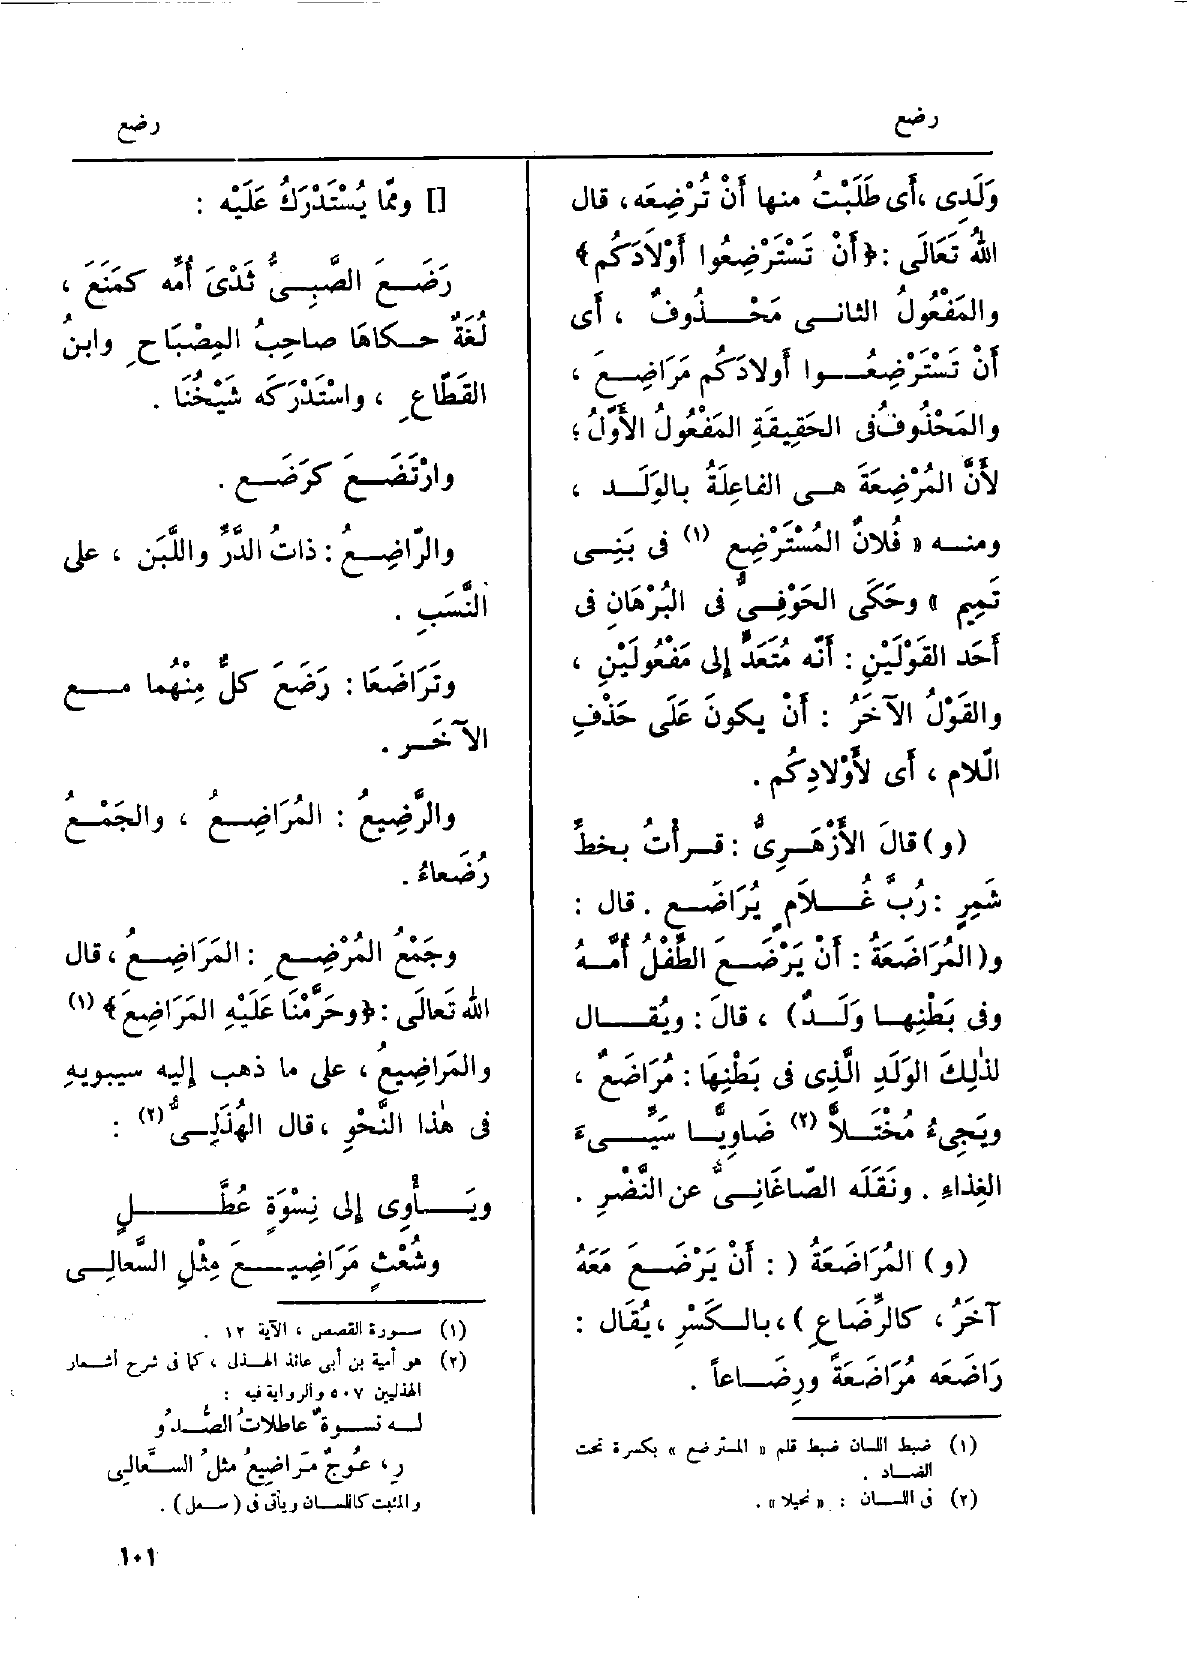 رضع
رضع
وَلَدِى ، أَى طَلَبْتُ منها أَنْ تُرْضِعَه ، قال
اللهُ تَعَالَى : ﴿أَنْ تَسْتَرْضِعُوا أَوْلاَدَكُم﴾
والمَفْعُولُ الثانى مَحْذُوفٌ ، أَى
أَنْ تَسْتَرْضِعُوا أَولادَكُم مَرَاضِعَ ،
والمَحْذُوفُ فى الحَقِيقَةِ المَفْعُولُ الأَوّلُ ؛
لأَنَّ المُرْضِعَةَ هى الفاعِلَةُ بالوَلَد ،
ومنه « فُلانٌ المُسْتَرْضِع (١) فى بَنِى
تَمِيم » وحَكَى الحَوْفِىُّ فى البُرْهَانِ فى
أَحَد القَوْلَيْنِ : أَنّه مُتَعَدٍّ إِلى مَفْعُولَيْنِ ،
والقَوْلُ الآخَرُ : أَنْ يكونَ عَلَى حَذْفِ
الّلام ، أَى لأَوْلادِكُم .
(و) قالَ الأَزْهَرِىُّ : قرأْتُ بخطِّ
شَمِرٍ : رُبَّ غُلاَمٍ يُرَاضَع . قال :
و(المُرَاضَعَةُ : أَنْ يَرْضَعَ الطِّفْلُ أُمَّهُ
وفى بَطْنِها وَلَدٌ) ، قالَ : ويُقال
لذٰلِكَ الوَلَدِ الَّذِى فى بَطْنِهَا : مُرَاضَعٌ ،
ويَجِىءُ مُخْتَلاًّ (٢) ضَاوِيًّا سَيِّىءَ
الغِذاءِ . ونَقَلَه الصّاغَانِىُّ عن النَّضْرِ .
(و) المُرَاضَعَةُ ( : أَنْ يَرْضَعَ مَعَهُ
آخَرُ ، كالرِّضَاعِ ) ، بالكَسْرِ ، يُقَال :
رَاضَعَه مُرَاضَعَةً ورِضَاعاً .
(١) ضبط اللسان ضبط قلم « المسترضع » بكسرة تحت
الضاد .
(٢) فى اللسان : « نحيلا » .
[] وممّا يُسْتَدْرَكُ عَلَيْه :
رَضَعَ الصَّبِىُّ ثَدْىَ أُمِّه كمَنَعَ ،
لُغَةٌ حكاهَا صاحِبُ المِصْبَاحِ وابنُ
القَطّاعِ ، واسْتَدْرَكَه شَيْخُنَا .
وارْتَضَعَ كرَضَع .
والرّاضِعُ : ذاتُ الدَّرِّ واللَّبَن ، على
النَّسَبِ .
وتَرَاضَعَا : رَضَعَ كلٌّ مِنْهُما مع
الآخَر .
والرَّضِيعُ : المُرَاضِعُ ، والجَمْعُ
رُضَعاءُ .
وجَمْعُ المُرْضِعِ : المَرَاضِعُ ، قال
الله تَعالَى : ﴿وحَرَّمْنَا عَلَيْهِ المَرَاضِعَ﴾ (١)
والمَرَاضِيعُ ، على ما ذهب إليه سيبويهِ
فى هٰذا النَّحْوِ ، قال الهُذَلِىُّ (٢) :
ويَأْوِى إِلى نِسْوَةٍ عُطَّلٍ
وشُعْثٍ مَرَاضِيعَ مِثْلِ السَّعالِى
(١) سورة القصص ، الآية ١٢ .
(٢) هو أمية بن أبى عائذ الهذلى ، كما فى شرح أشعار
الهذليين ٥٠٧ والرواية فيه :
له نسوةٌ عاطلاتُ الصُّدُو
رِ ، عُوجٌ مَراضِيعُ مثلُ السَّعَالِى
والمثبت كاللسان ويأتى فى (سعل) .
١٠١